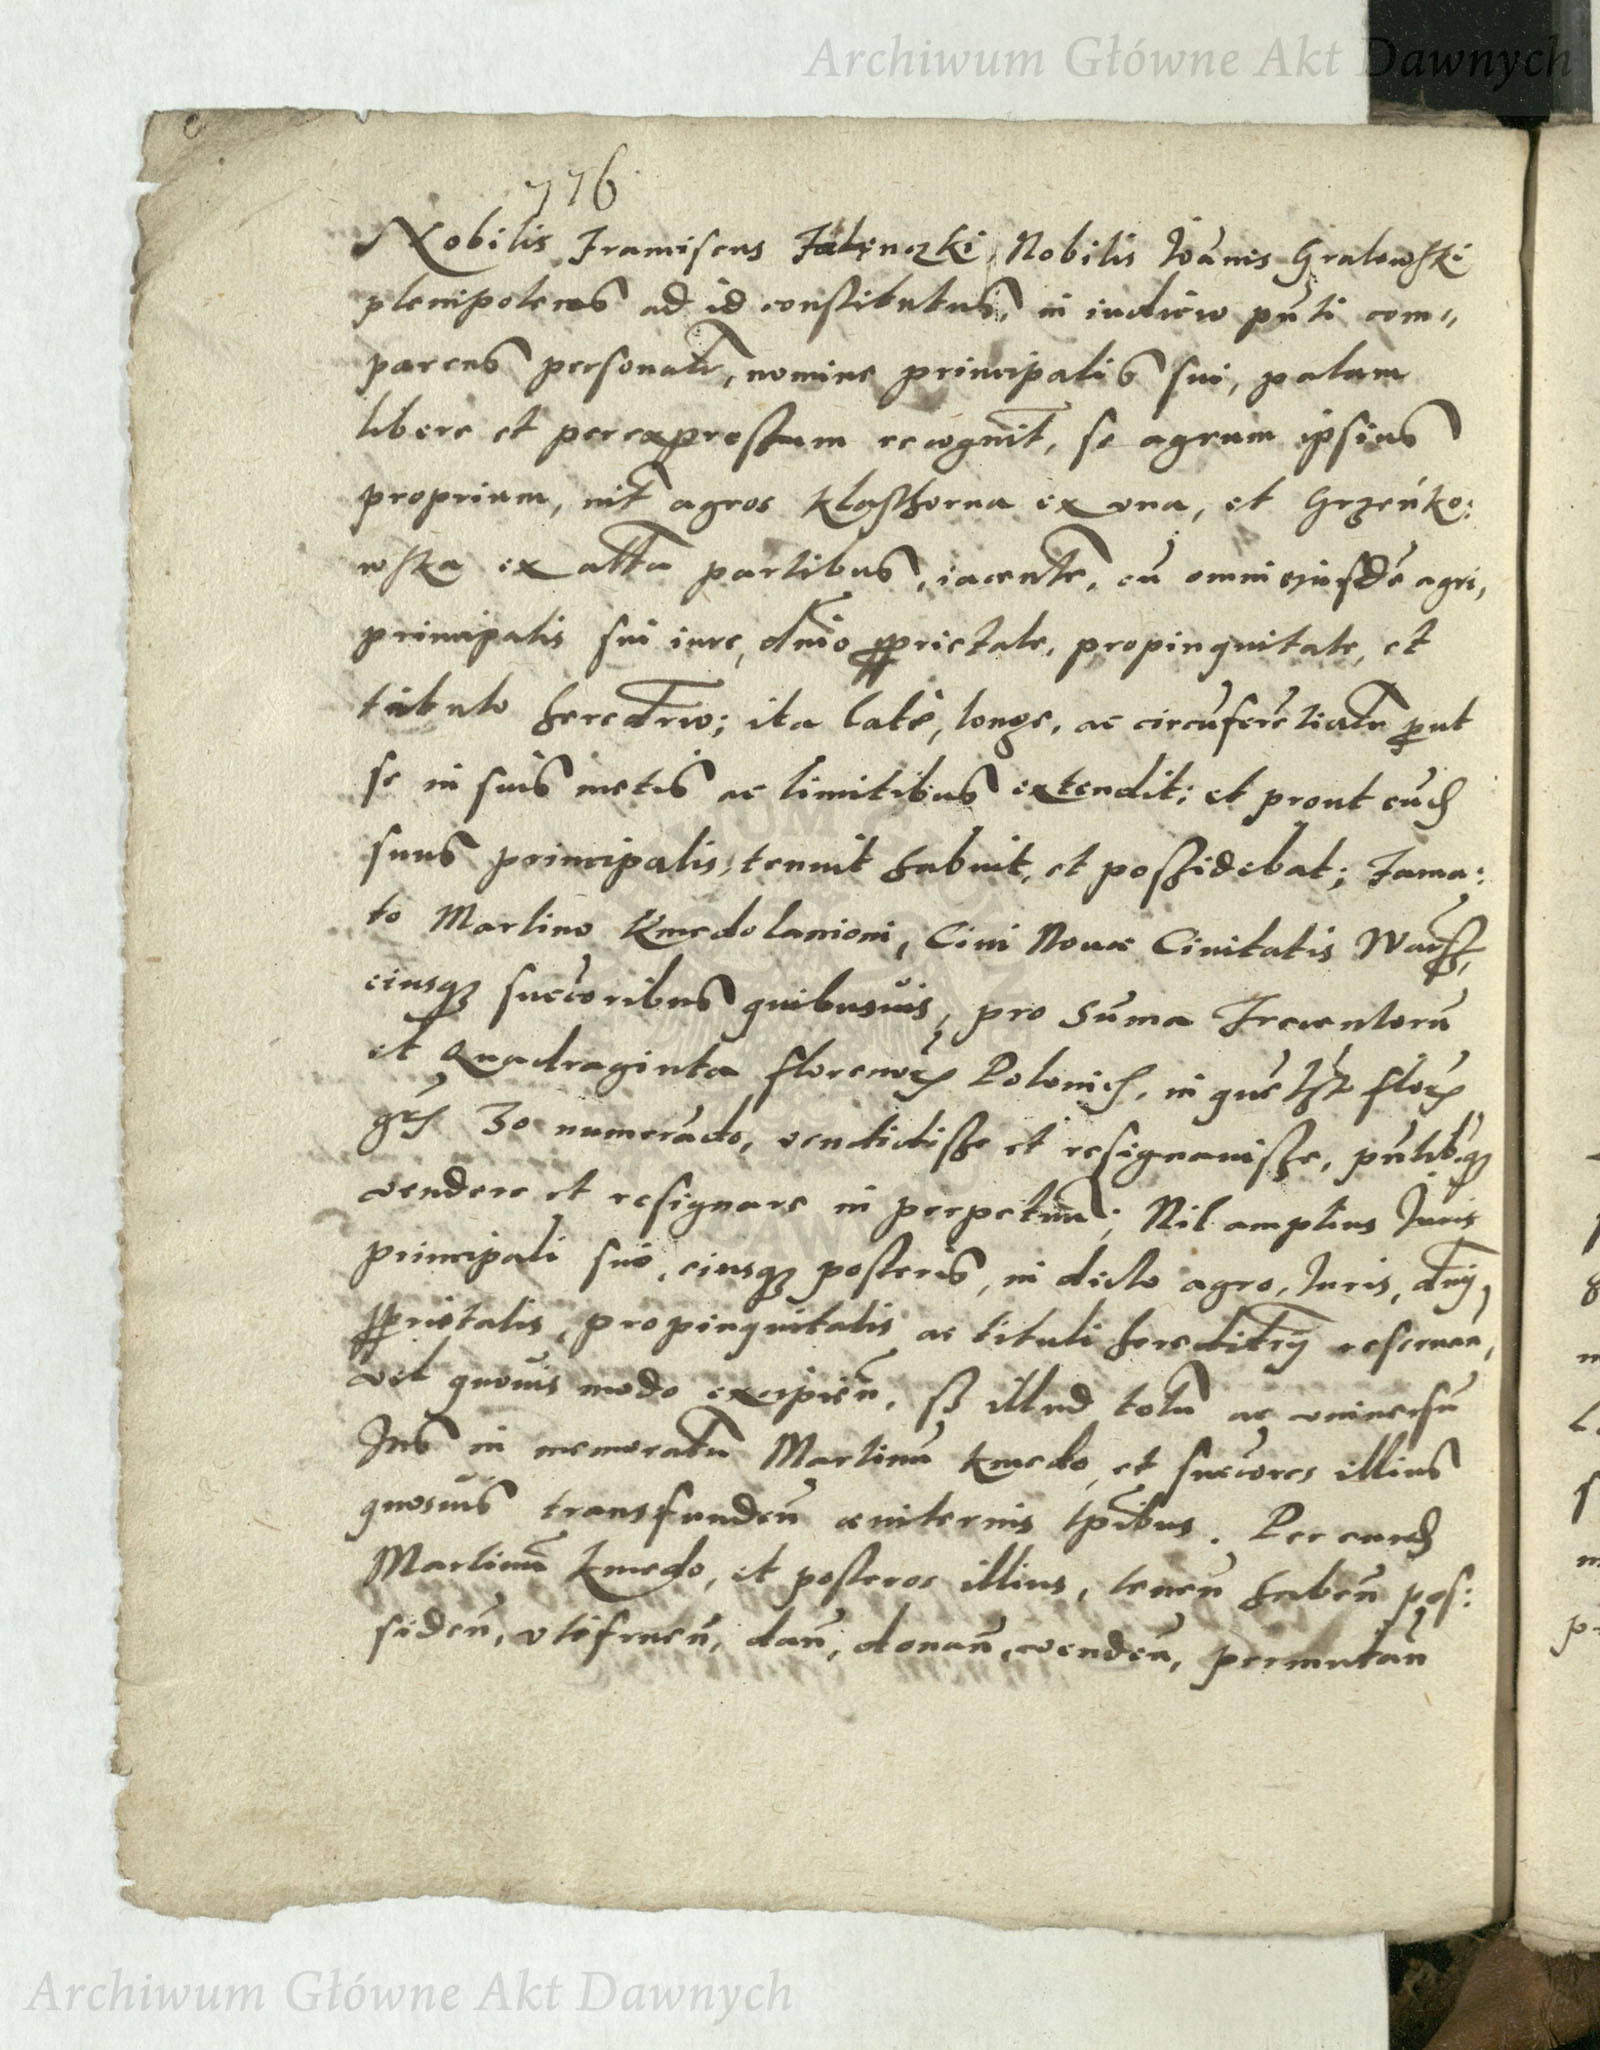 Archiwum Główne Akt Dawnych
776
Nobilis Franciscus Falęnczki, Nobilis Ioānis Gralewski
plenipotens ad id constitutus, in iudicio pñti com„
parens personalr, nomine principalis sui, palam
libere et perexpressum recognit, se agrum ipsius
proprium, int agros Klasthorna ex vna, et Grzeńko:
wska ex altra partibus, iacente, cū omni eiusdē agri,
principalis sui iure, dnio pprietate, propinquitate, et
titulo heredrio; ita latè, longe, ac circūferētialr put
se in suis metis ac limitibus extendit; et prout eūd
suus principalis, tenuit habuit, et possidebat; Fama:
to Martino Kmedo lanioni, Ciui Nouæ Ciuitatis Warss,
eiusq succoribus quibusuis, pro Sūma Trecentorū
et Quadraginta florenor Polonic, in quēlibt flor
grs 30 numerādo, vendidisse et resignauisse, pñtibq
vendere et resignare in perpetuū; Nil amplius Iuris
principali suo, eiusq posteris, in dicto agro, Iuris, dnij,
pprietatis, propinquitatis ac tituli hereditrij reseruań,
vel quouis modo excipień, sz illud totū ac vniuersū
Ius in memoratū Martinū Kmedo, et succores illius
quosuis transfundeń æuiternis tpibus. Per eund
Martinū Kmedo, et posteros illius, teneń habeń pos:
sideń, vtifrueń, dań, donań, vendeń, permutań
Archiwum Główne Akt Dawnych